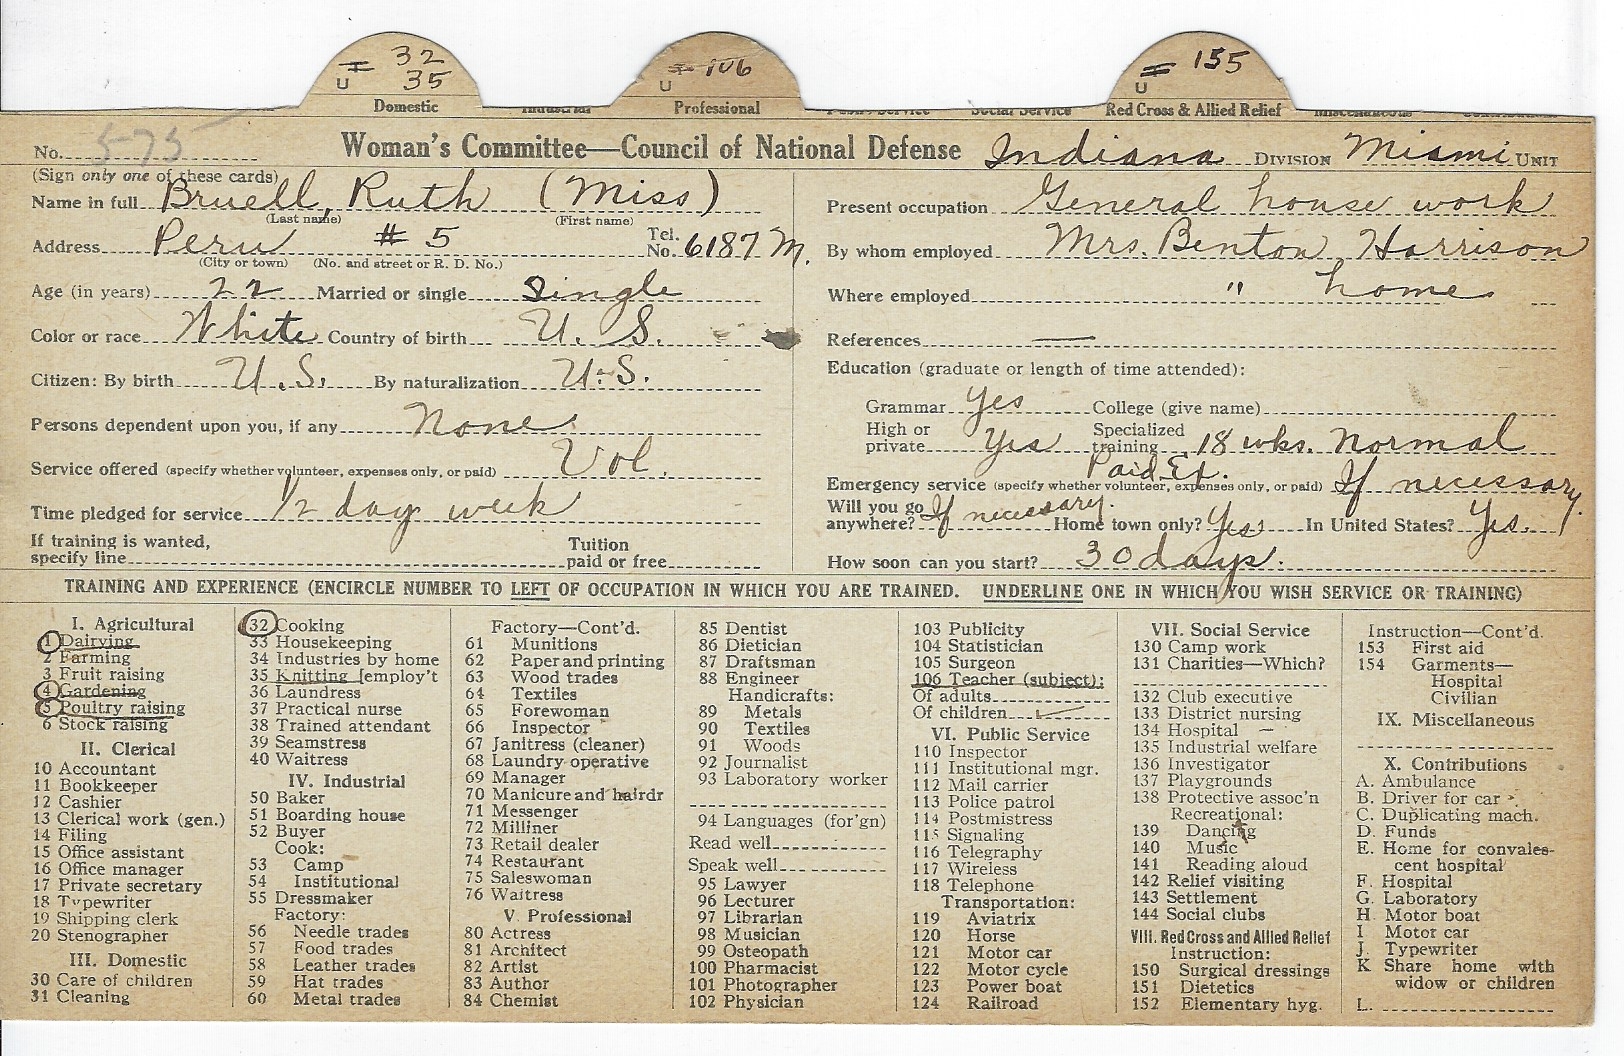 32
U 35
U 106
155
U
Domestic Industrial Professional Public Service Social Service Red Cross & Allied Relief Miscellaneous Contributions
No. 575 Woman's Committee—Council of National Defense Indiana DIVISION Miami UNIT
(Sign only one of these cards)
Name in full Bruell, Ruth (Miss)
(Last name) (First name)
Address Peru # 5 Tel. No. 6187 M.
(City or town) (No. and street or R. D. No.)
Age (in years) 22 Married or single Single
Color or race White Country of birth U. S.
Citizen: By birth U.S. By naturalization U.S.
Persons dependent upon you, if any None
Service offered (specify whether volunteer, expenses only, or paid) Vol.
Time pledged for service 1/2 day week
If training is wanted,
specify line Tuition paid or free
Present occupation General house work
By whom employed Mrs. Benton Harrison
Where employed " home
References —
Education (graduate or length of time attended):
Grammar Yes College (give name)
High or private Yes Specialized training 18 wks. Normal
Paid Ex.
Emergency service (specify whether volunteer, expenses only, or paid) If necessary.
Will you go anywhere? If necessary. Home town only? Yes. In United States? Yes.
How soon can you start? 30 days.
TRAINING AND EXPERIENCE (ENCIRCLE NUMBER TO LEFT OF OCCUPATION IN WHICH YOU ARE TRAINED. UNDERLINE ONE IN WHICH YOU WISH SERVICE OR TRAINING)
I. Agricultural
1 Dairying
2 Farming
3 Fruit raising
4 Gardening
5 Poultry raising
6 Stock raising
II. Clerical
10 Accountant
11 Bookkeeper
12 Cashier
13 Clerical work (gen.)
14 Filing
15 Office assistant
16 Office manager
17 Private secretary
18 Typewriter
19 Shipping clerk
20 Stenographer
III. Domestic
30 Care of children
31 Cleaning
32 Cooking
33 Housekeeping
34 Industries by home
35 Knitting [employ't
36 Laundress
37 Practical nurse
38 Trained attendant
39 Seamstress
40 Waitress
IV. Industrial
50 Baker
51 Boarding house
52 Buyer
Cook:
53 Camp
54 Institutional
55 Dressmaker
Factory:
56 Needle trades
57 Food trades
58 Leather trades
59 Hat trades
60 Metal trades
Factory—Cont'd.
61 Munitions
62 Paper and printing
63 Wood trades
64 Textiles
65 Forewoman
66 Inspector
67 Janitress (cleaner)
68 Laundry operative
69 Manager
70 Manicure and hairdr
71 Messenger
72 Milliner
73 Retail dealer
74 Restaurant
75 Saleswoman
76 Waitress
V. Professional
80 Actress
81 Architect
82 Artist
83 Author
84 Chemist
85 Dentist
86 Dietician
87 Draftsman
88 Engineer
Handicrafts:
89 Metals
90 Textiles
91 Woods
92 Journalist
93 Laboratory worker
94 Languages (for'gn)
Read well
Speak well
95 Lawyer
96 Lecturer
97 Librarian
98 Musician
99 Osteopath
100 Pharmacist
101 Photographer
102 Physician
103 Publicity
104 Statistician
105 Surgeon
106 Teacher (subject):
Of adults
Of children ✓
VI. Public Service
110 Inspector
111 Institutional mgr.
112 Mail carrier
113 Police patrol
114 Postmistress
115 Signaling
116 Telegraphy
117 Wireless
118 Telephone
Transportation:
119 Aviatrix
120 Horse
121 Motor car
122 Motor cycle
123 Power boat
124 Railroad
VII. Social Service
130 Camp work
131 Charities—Which?
132 Club executive
133 District nursing
134 Hospital —
135 Industrial welfare
136 Investigator
137 Playgrounds
138 Protective assoc'n
Recreational:
139 Dancing
140 Music
141 Reading aloud
142 Relief visiting
143 Settlement
144 Social clubs
VIII. Red Cross and Allied Relief
Instruction:
150 Surgical dressings
151 Dietetics
152 Elementary hyg.
Instruction—Cont'd.
153 First aid
154 Garments—
Hospital
Civilian
IX. Miscellaneous
X. Contributions
A. Ambulance
B. Driver for car
C. Duplicating mach.
D. Funds
E. Home for convales-
cent hospital
F. Hospital
G. Laboratory
H. Motor boat
I Motor car
J. Typewriter
K Share home with
widow or children
L.